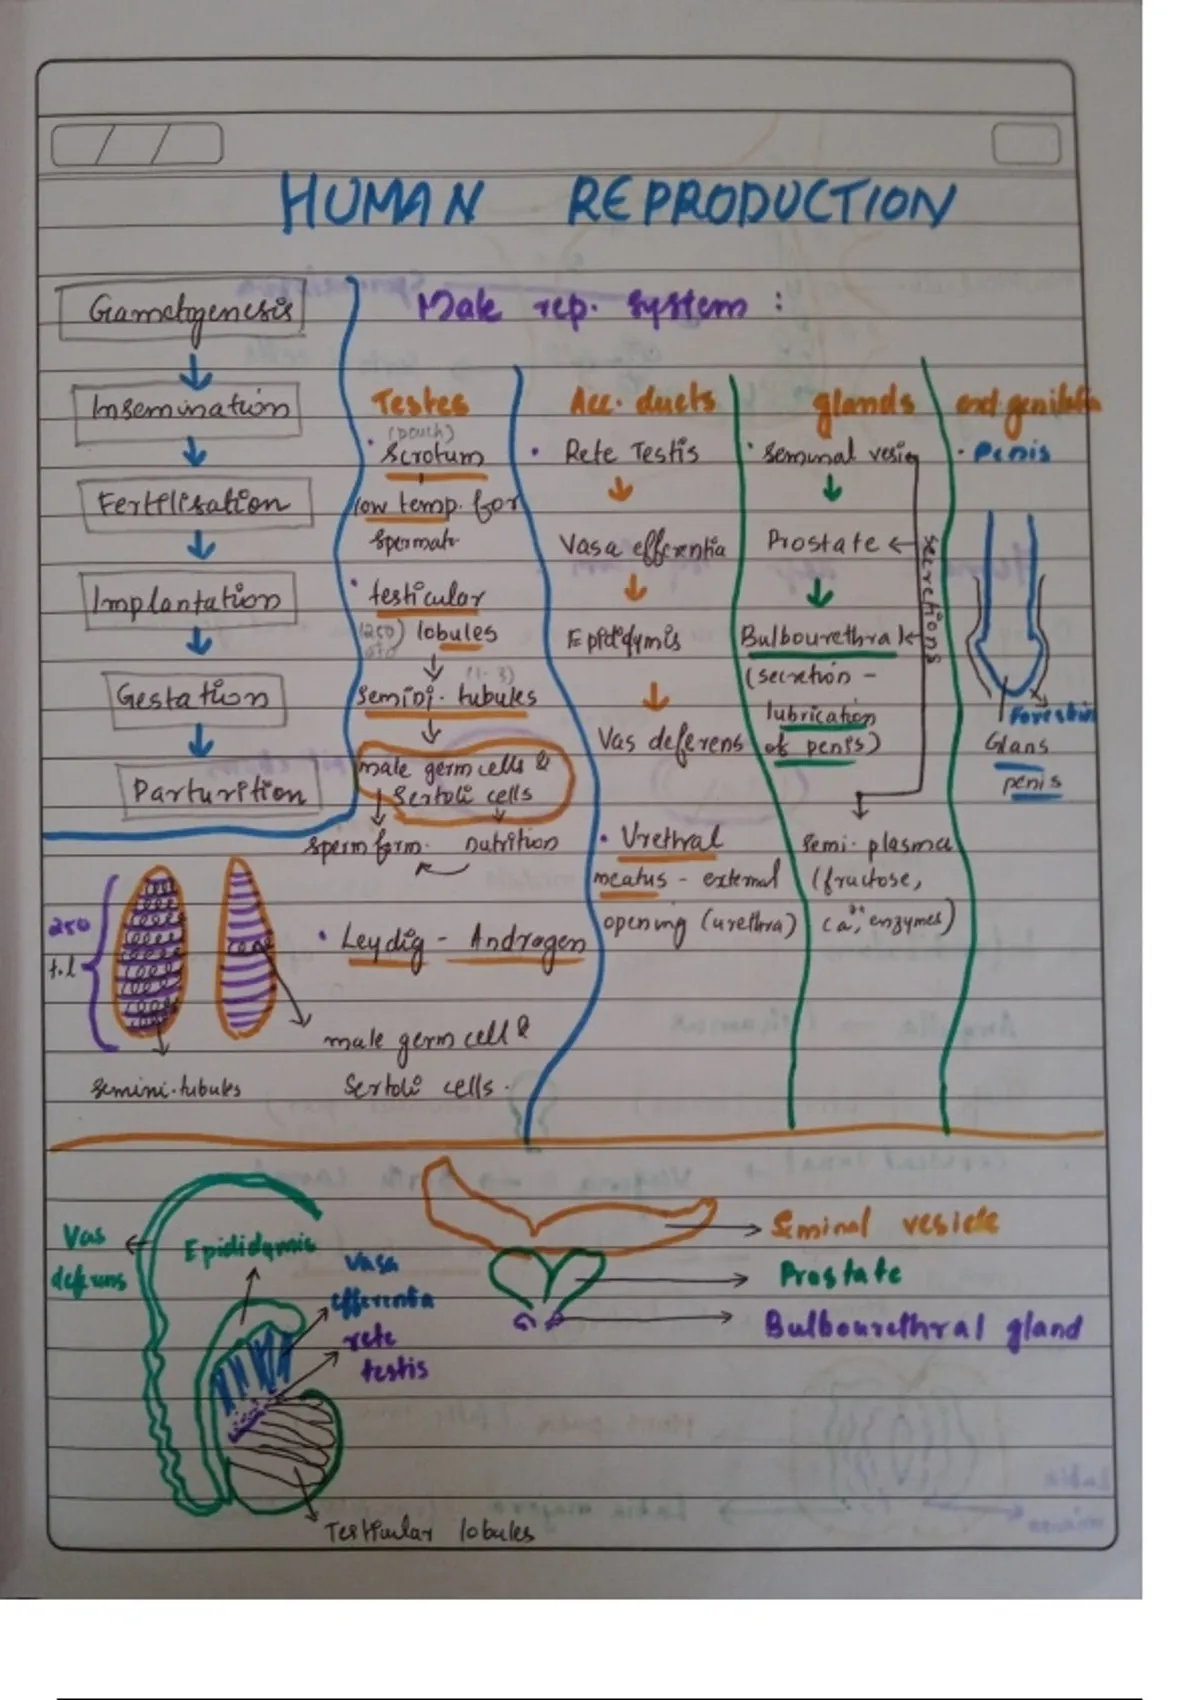 HUMAN REPRODUCTION
Gametogenesis
Insemination
Fertilisation
Implantation
Gestation
Parturition
Male rep. system :
Testes
(pouch)
• Scrotum
low temp. for
spermato
• testicular
(250) lobules
(1-3)
semini. tubules
male germ cells &
Sertoli cells
sperm form. nutrition
• Leydig - Androgen
250
t.l
semini.tubules
male germ cell &
Sertoli cells.
Acc. ducts
• Rete Testis
Vasa efferentia
Epididymis
Vas deferens
• Urethral
meatus - external
opening (urethra)
glands
• Seminal vesi
Prostate
Bulbourethral
secretions
(secretion -
lubrication
of penis)
semi. plasma
(fructose,
Ca2+, enzymes)
ext. genitalia
• Penis
Foreskin
Glans
penis
Vas
deferens
Epididymis
Vasa
efferentia
rete
testis
Testicular lobules
Seminal vesicle
Prostate
Bulbourethral gland